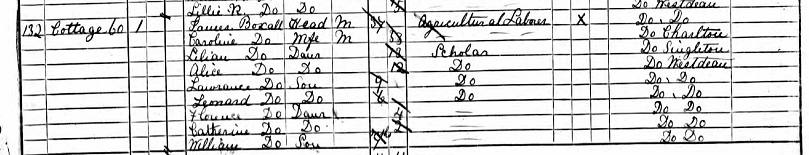 Lillie R. Do Do Do Westdean
132 Cottage 60 1 James Boxall Head M Agricultural Labour X Do. Do
Caroline Do Wife M Do Charlton
Lilian Do Daur Scholar Do Singleton
Alice Do Do Do Do Westdean
Lawrance Do Son 9 Do Do. Do
Leonard Do Do Do Do. Do
Florence Do Daur Do Do
Catherine Do Do. Do Do
William Do Son Do Do